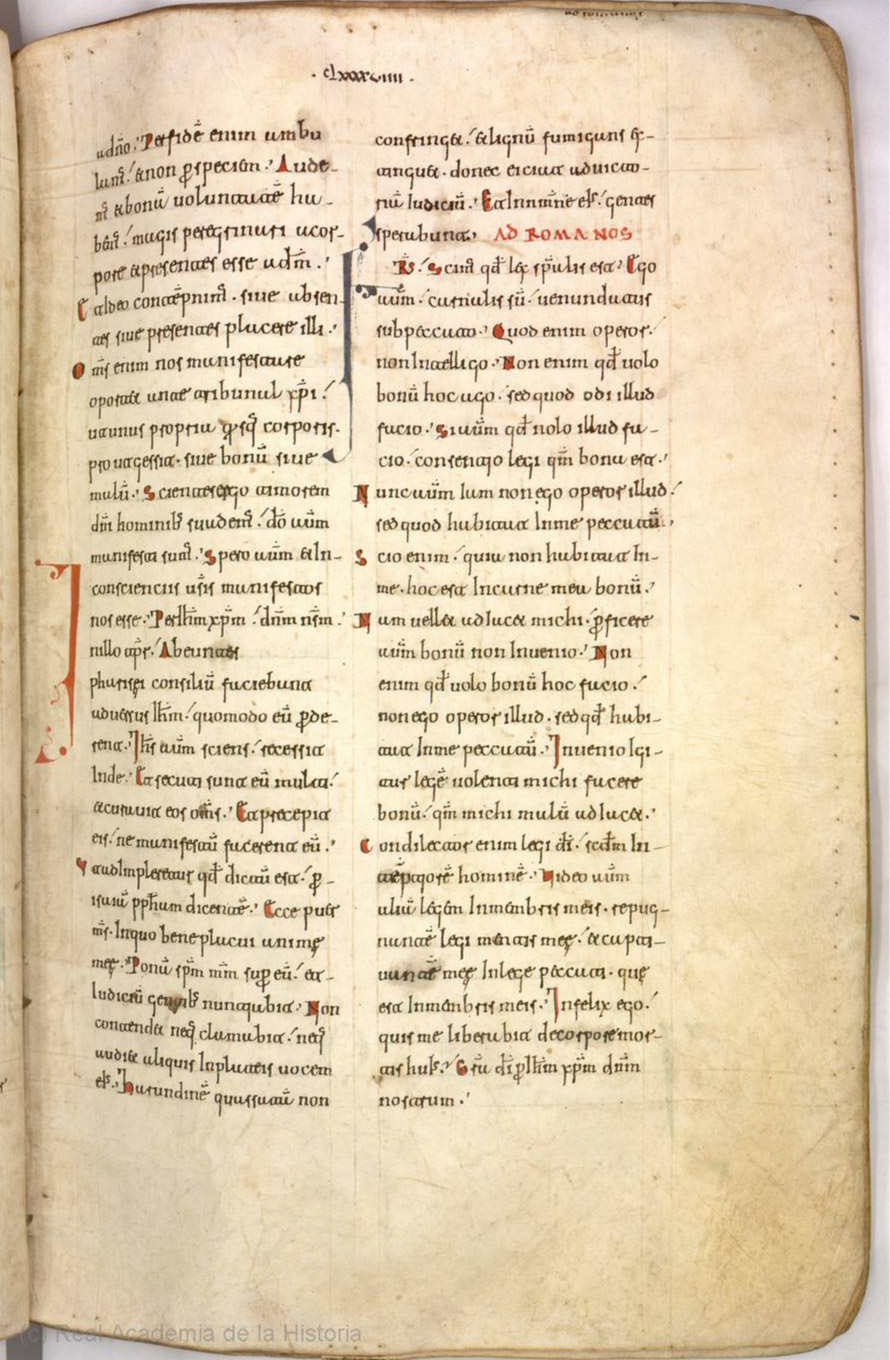 · clxxxviiii ·
adño. Per fidē enim ambu
lam̄s. & non ꝑ speciem. Aude
m̄s & bonū voluntatē hu
bem̄s. magis peregrinari a cor
pore & presentes esse ad dm̄.
Et ideo contēpnim̄s. sive absen
tes sive presentes placere illi.
Om̄s enim nos manifestare
oportet ante tribunal xp̄i.
ut unus propria ꝑ sq̄ corporis.
pro ut gessit. sive bonū sive
malū. Scientes ergo timorem
dn̄i hominibꝰ suadem̄s. dō autem
manifesti sum̄s. Spero autem & In
conscienciis ur̄is manifestos
nos esse. Per Ihm̄ xp̄m. dnm̄ nsm̄.
In illo tp̄r. Abeuntes
pharisęi consiliū faciebant
adversus Ihm̄. quomodo eū ꝑde
rent. Ihs̄ autem sciens. secessit
Inde. Et secuti sunt eū multi.
et curavit eos om̄s. Et precepit
eis. ne manifestū facerent eū.
Ut adImpleretur qd̄ dictū est. ꝑ
isaiā pp̄hm dicentē. Ecce puer
m̄s. In quo bene placui animę
meę. Ponā sp̄m mm̄ super eū. et
Iudiciū gentibꝰ nuntiabit. Non
contendet neq̄ clamabit. neq̄
audiet aliquis In plateis vocem
eIꝰ. Harundinē quassatā non
confringet. & lignū fumigans ex
tinguet. donec eiciat ad victo
riā Iudiciū. Et In nm̄ne eIꝰ. gentes
sperabunt. AD ROMANOS
Fr̄s. Scim̄s qd̄ lex sp̄alis est. Ego
autem. carnalis sū. venundatus
sub peccato. Quod enim operor.
non Intelligo. Non enim qd̄ volo
bonū hoc ago. sed quod odi illud
facio. Si autem qd̄ nolo illud fa
cio. consentio legi qm̄ bona est.
Nunc autem Iam non ego operor illud.
sed quod habitat In me peccatū.
Scio enim. quia non habitat In
me. hoc est In carne mea bonū.
Nam velle adIacet michi. ꝑficere
autem bonū non Invenio. Non
enim qd̄ volo bonū hoc facio.
non ego operor illud. sed qd̄ habi
tat In me peccatū. Invenio Igi
tur legē volenti michi facere
bonū. qm̄ michi malū adIacet.
Condilector enim legi dī. scdm̄ In
teriorē hominē. Video autem
aliā legem In menbris meis. repug
nantē legi mentis meę. & capti
vantē meę In lege peccati. quę
est In menbris meis. Infelix ego.
quis me liberabit de corpore mor
tis huIꝰ. Gr̄a dī ꝑ Ihm̄ xp̄m dnm̄
nostrum.
(c) Real Academia de la Historia